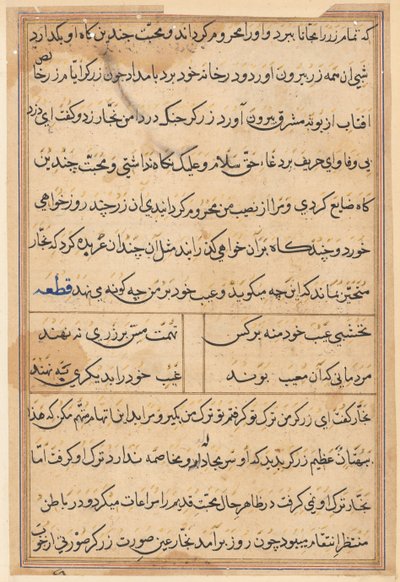 که تمام زر را مجانا ببرد و او را محروم گرداند و محبت چندین گاه او بگذارد
شبی آن همه زر بیرون آورد و در خانه خود برد بامداد چون زرگر ایام زر خالص
آفتاب از بوته مشرق بیرون آورد زرگر چنگ در دامن نجار زد و گفت ای دزد
بی وفا و ای حریف پر دغا حق سلام و علیک نگاه نداشتی و محبت چندین
گاه ضایع کردی و مرا از نصیب من محروم گردانیدی آن زر چند روز خواهی
خورد و چند گاه بر آن خواهی گذرانید مثل آن چندان عربده کرد که نجار
متحیر بماند که این چه میگوید و عیب خود بر من چه گونه می نهد قطعه
نخشبی عیب خود منه بر کس
تهمت مس بر زری نه نهند
مردمانی که آن معیب بوند
عیب خود را بدیگری نه نهند
نجار گفت ای زرگر من ترک تو گرفتم تو ترک من بگیر و مرا بدین اتهام متهم مکن که هذا
بهتان عظیم زرگر بدید که او سر مجادله و مخاصمه ندارد ترک او گرفت اما
نجار ترک او نمی گرفت در ظاهر حال محبت قدیم را مراعات میکرد و در باطن
منتظر انتقام میبود چون روز برآمد نجار عین صورت زرگر صورتی از چوب